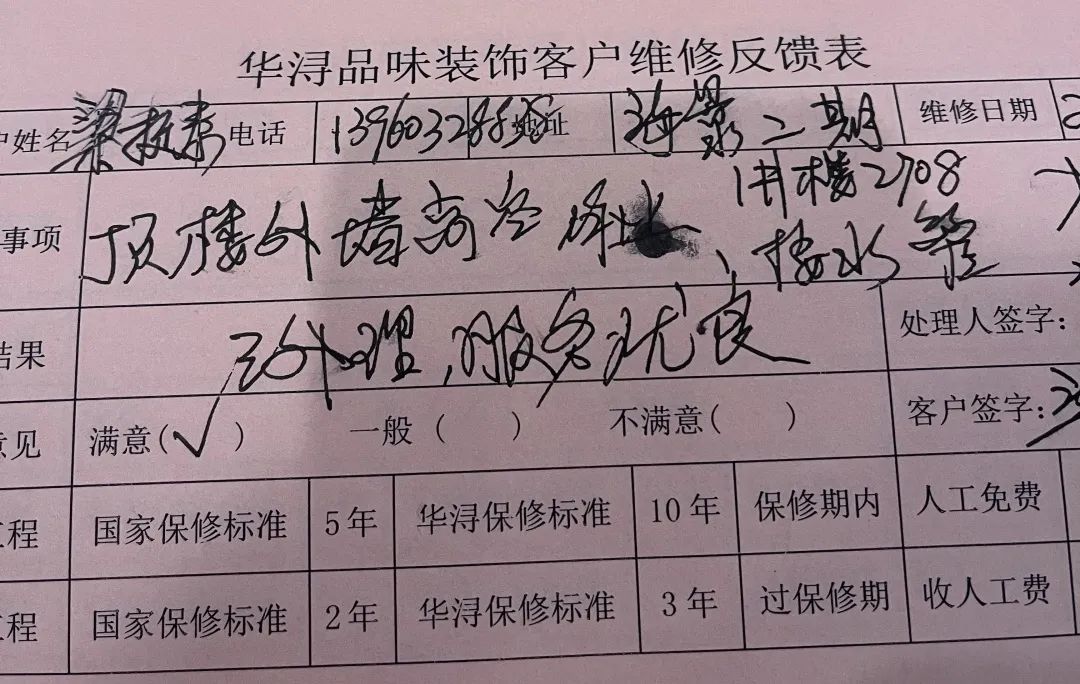 华浔品味装饰客户维修反馈表
户姓名 梁 电话 地址 海景二期 维修日期
1井楼2708
事项 顶楼外墙 接水管
结果 处理,服务优良 处理人签字:
意见 满意(✓) 一般( ) 不满意( ) 客户签字:
工程 国家保修标准 5年 华浔保修标准 10年 保修期内 人工免费
工程 国家保修标准 2年 华浔保修标准 3年 过保修期 收人工费